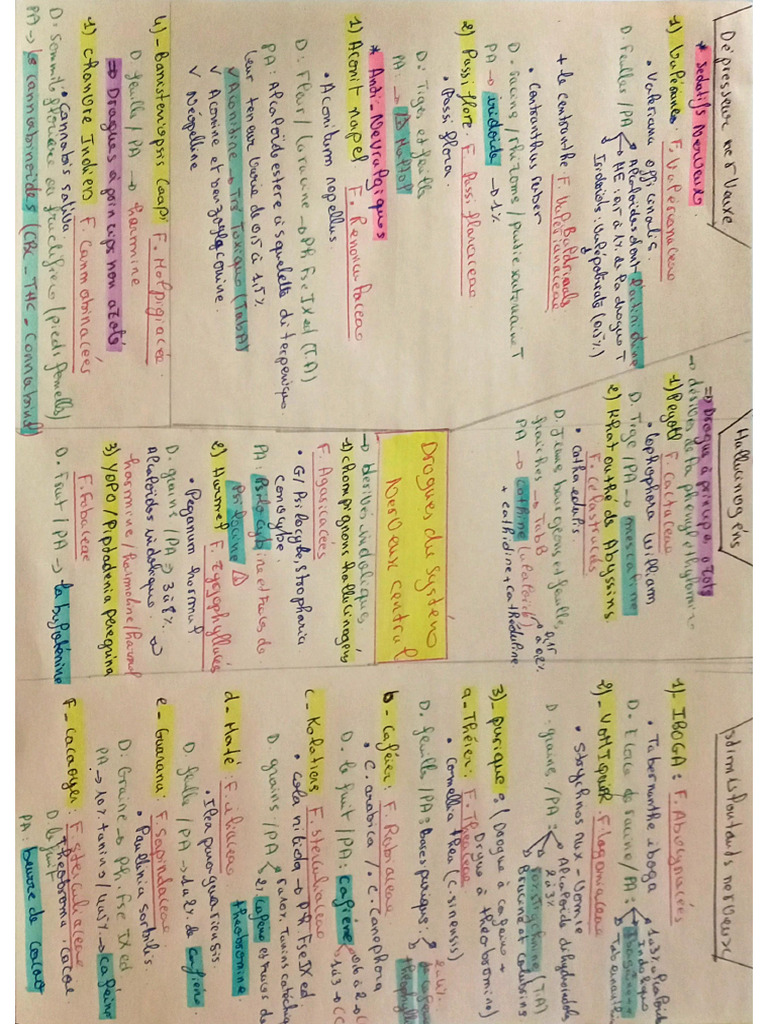 Dépresseur nerveux
* Sédatifs Nerveux.
1) Valériane : F. Valérianaceae
• Valeriana officinalis.
D. Feuilles / PA
Alcaloïdes dont l'actinidine
HE : 0,5 à 1% de la drogue T
Iridoïds : Valépotriats (0,5%)
+ le centranthe F.
Valerianaceae
• Centranthus ruber
D. racins / rhizoms / partie souterraine T
PA → iridoïde → 1%
2) Passiflore : F. Passifloraceae
• Passiflora.
D : Tiges et feuille
PA →
* Anti-Nevralgiques
1) Aconit napel F. Renonculaceae
• Aconitum napellus
D : Fleur / la racine → Ph. Fse IX ed (T.A)
PA : Alcaloïds ester à squelette diterpenique
leur teneur varie de 0,5 à 1,5%
✓ Aconitine → Très Toxique (Tab A)
✓ Aconine et benzoylaconine.
✓ Néopelline
4) - Banisteriopsis Caapi F. Malpigiacée.
D. feuille / PA → harmine
⇒ Drogues à princips non azoté
1) chanvre Indien F. Cannabinacées
• Cannabis sativa
D : Sommité fleurie ou fructifiées (pieds femelles)
PA → les cannabinoïdes (CBC - THC - Cannabinol)
Hallucinogéns
⇒ Drogue à principe azoté
→ dérivés de la phenylethylamine
1) Peyotl F. cactaceae
• Lophophora William
D. Tige / PA → mescaline
2) Khat ou thé des Abyssins.
F. Celastracés
• Catha edulis
D. Jeune bourgeons et feuille,
fraiches → Tab B
PA → cathine (alcaloïde) 0,15 à 0,2%
+ cathidine + cathéduline
Drogues du systéme
Nerveux central
→ dérivés indoliques
1) champignons hallucinogéns
F. Agaricacées
• G/ Psilocybe, Stropharia
Conocybe.
PA : Psilocybine et traces de
Psilocine
2) Harmel F. Zygophyllacés
• Peganum harmal
D. grains / PA → 3 à 8%
Alcaloïdes indolique.
harmine / harmoline / harmal
3) YOPO / Piptadenia peregrina
F. Fabaceae
D. Fruit / PA → la bufoténine
stimulants nerveux
1) - IBOGA : F. Apocynacées
• Tabernanthe iboga
D. Ecorce de racine / PA :
1 à 3% alcaloïde
Indolique
2) - VOMIQUIER F. loganiaceae
• Strychnos nux-vomica
D. grains / PA :
Alcaloïde
2 à 3%
Strychnine (T.A)
Brucine et colubrins
3) - purique : (Drogue à caféine +
Drogue à théobromine)
a - Théier : F. Theaceae
• Camellia thea (C. sinensis)
D. feuille / PA : Bases purique :
théophylle
b - Caféier : F. Rubiaceae
• C. arabica / • C. Canephora
D. le fruit / PA : caféine
c - Kolatiers F. Sterculiaceae
• cola nitida → Ph. Fse IX ed.
D. grains / PA
5 à 10% Tanins catéchiq
2% caféine et traces de
théobromine.
d - Maté : F. iliaceae
• Ilex paraguariensis
D. feuille / PA → 1 à 2% de caféine.
e - Guarana : F. Sapindaceae
• Paullinia sorbilis
D : Graine → Ph. Fse IX ed
PA → 10% tanins / 4 à 5% → caféine
F - Cacaoyer : F. Sterculiaceae
Theobroma cacao.
D. le fruit
PA : beurre de Cacao